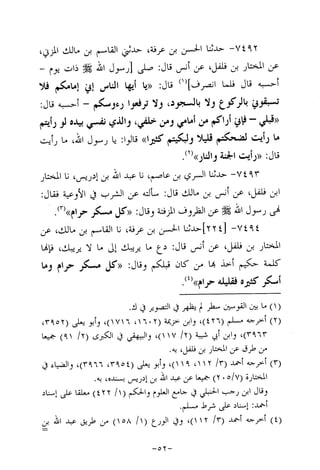 ٧٤٩٢- حدثنا الحسن بن عرفة، حدثني القاسم بن مالك المزني،
عن المختار بن فلفل، عن أنس قال: صلى [رسول الله ﷺ ذات يوم -
أحسبه قال فلما انصرف](١) قال: «يا أيها الناس إني إمامكم فلا
تسبقوني بالركوع ولا بالسجود، ولا ترفعوا رءوسكم - أحسبه قال:
«قبلي - فإني أراكم من أمامي ومن خلفي، والذي نفسي بيده لو رأيتم
ما رأيت لضحكتم قليلا ولبكيتم كثيرا» قالوا: يا رسول الله، ما رأيت
قال: «رأيت الجنة والنار»(٢).
٧٤٩٣- حدثنا السري بن عاصم، نا عبد الله بن إدريس، نا المختار
ابن فلفل، عن أنس بن مالك قال: سألته عن الشرب في الأوعية فقال:
نهى رسول الله ﷺ عن الظروف المزفتة وقال: «كل مسكر حرام»(٣).
٧٤٩٤- [٢٢٤] حدثنا الحسن بن عرفة، نا القاسم بن مالك، عن
المختار بن فلفل، عن أنس قال: دع ما يريبك إلى ما لا يريبك، فإنها
كلمة حكيم أخذ بها من كان قبلكم وقال: «كل مسكر حرام وما
أسكر كثيره فقليله حرام»(٤).
(١) ما بين القوسين سطر لم يظهر في التصوير في ك.
(٢) أخرجه مسلم (٤٢٦)، وابن خزيمة (١٦٠٢، ١٧١٦)، وأبو يعلى (٣٩٥٢،
٣٩٦٣)، وابن أبي شيبة (٢/ ١١٧)، والبيهقي في الكبرى (٢/ ٩١) جميعا
من طرق عن المختار بن فلفل، به.
(٣) أخرجه أحمد (٣/ ١١٢، ١١٩)، وأبو يعلى (٣٩٥٤، ٣٩٦٦)، والضياء في
المختارة (٧/ ٢٠٥) جميعا عن عبد الله بن إدريس بسنده، به.
وقال ابن رجب الحنبلي في جامع العلوم والحكم (١/ ٤٢٢) معلقا على إسناد
أحمد: إسناد على شرط مسلم.
(٤) أخرجه أحمد (٣/ ١١٢)، وفي الورع (١/ ١٥٨) من طريق عبد الله بن =
-٥٢-